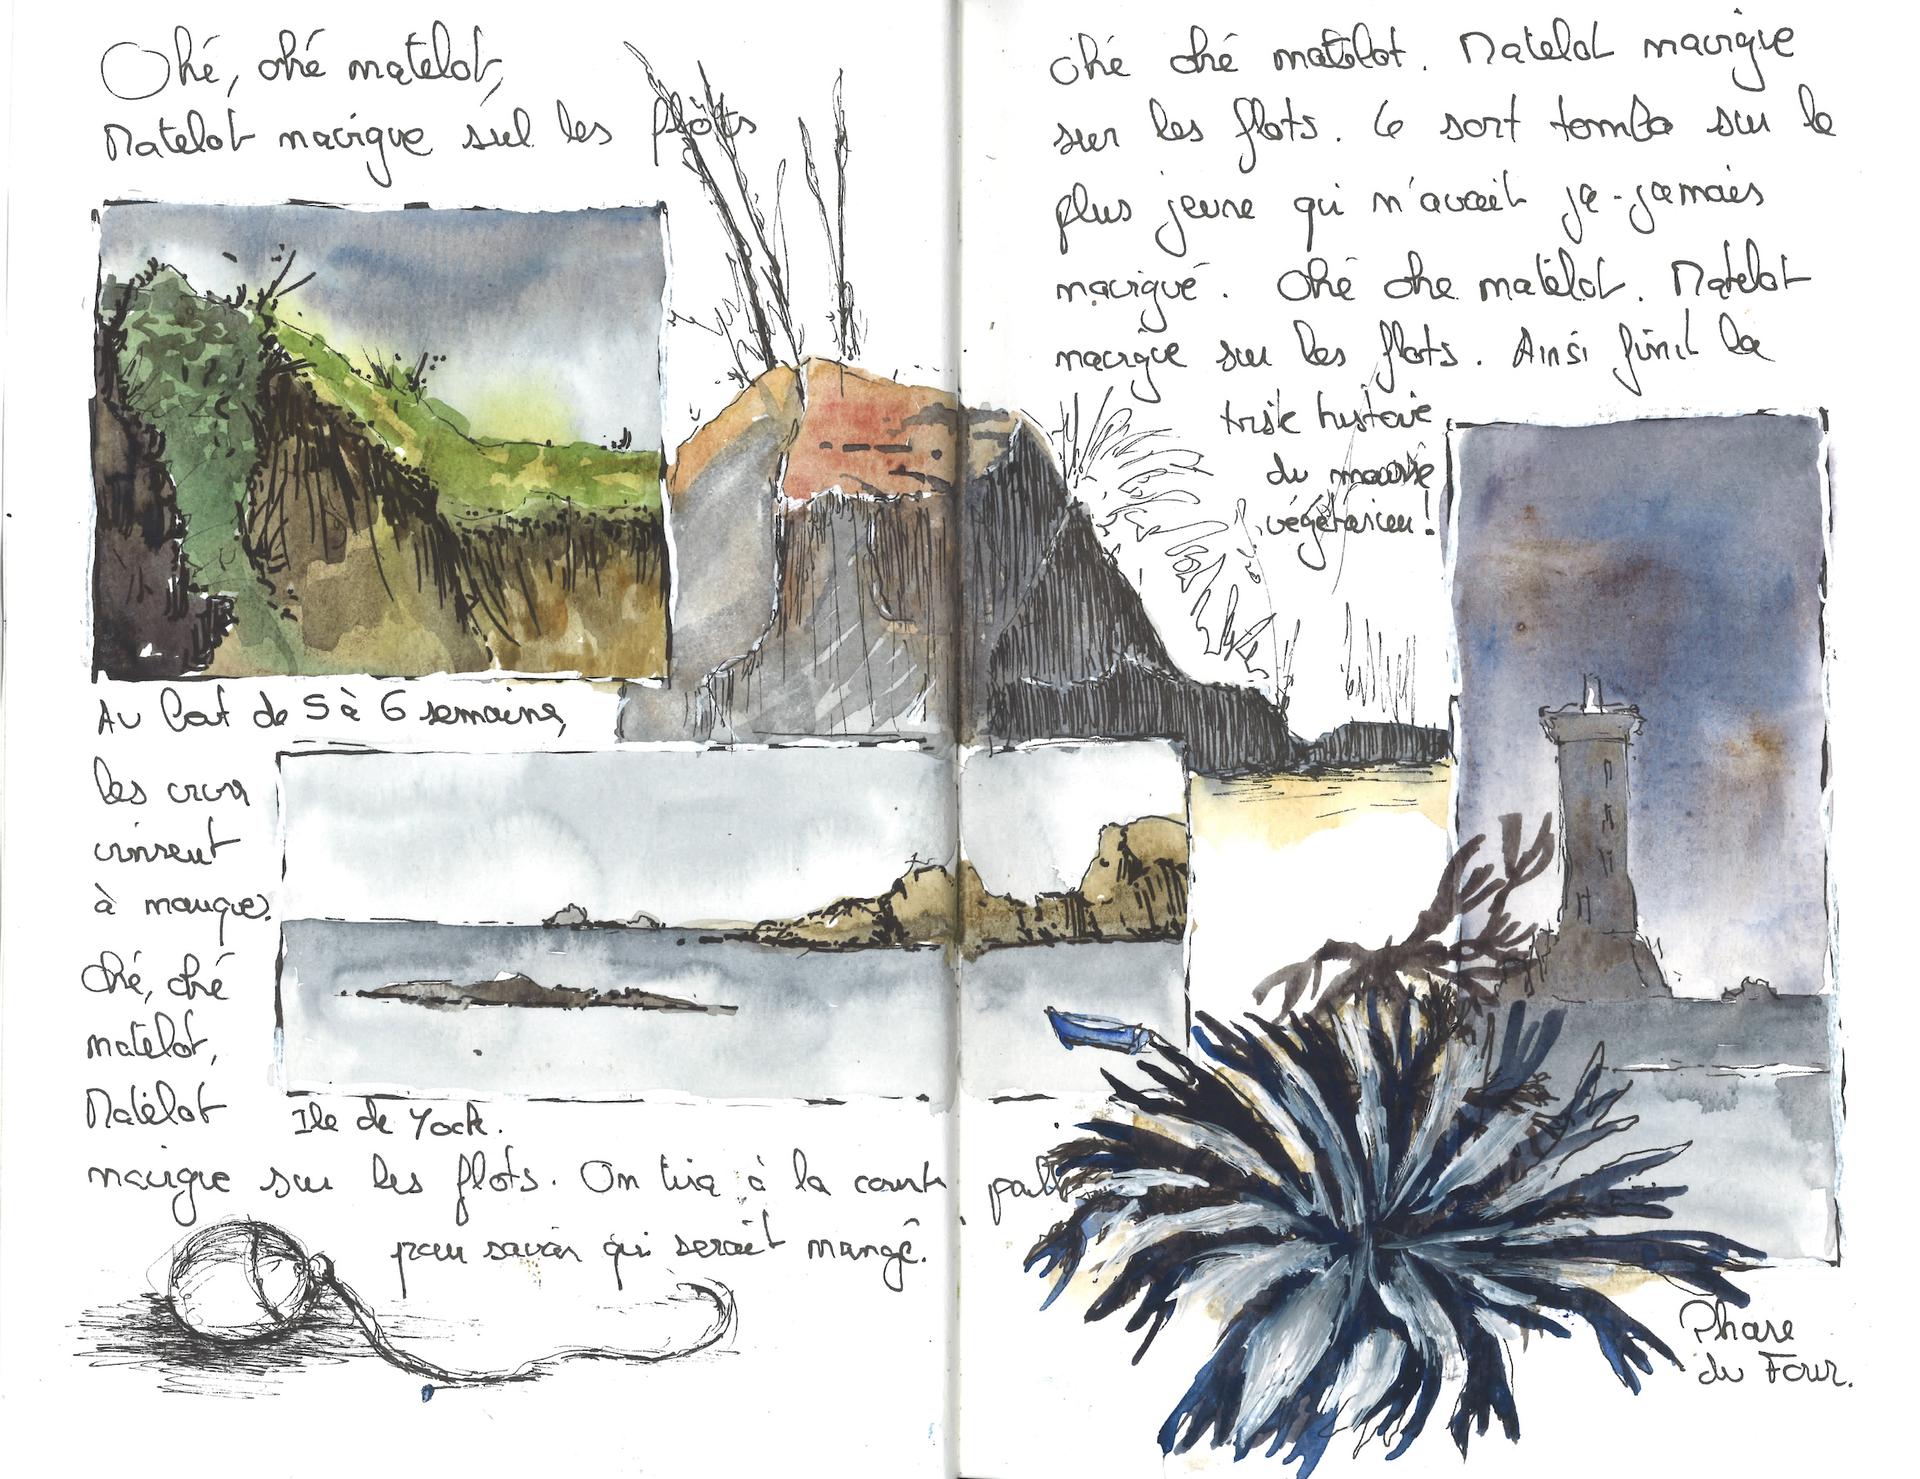 Ohé, ohé matelot,
Matelot navigue sul les flots
Au bout de 5 à 6 semaines,
les vivres
vinrent
à manquer.
Ohé, ohé
matelot,
Matelot
Ile de Yock.
navigue sur les flots. On tira à la courte paille
pour savoir qui serait mangé.
Ohé ohé matelot. Matelot navigue
sur les flots. Le sort tomba sur le
plus jeune qui n'avait ja-jamais
navigué. Ohé ohe matelot. Matelot
navigue sur les flots. Ainsi finit la
triste histoire
du
végétarien!
Phare
du Four.